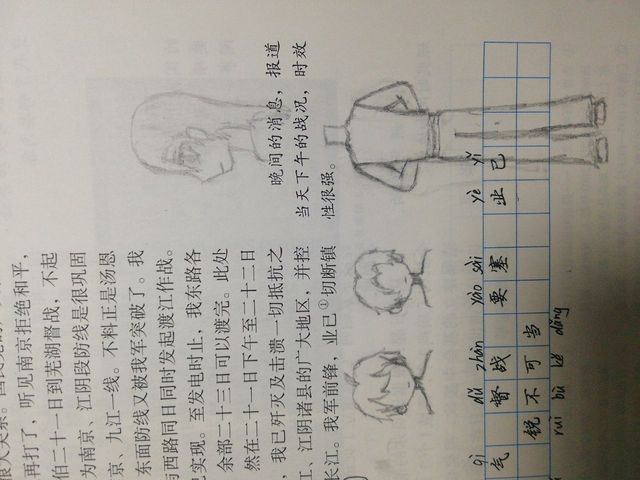 很大关系。
再打了，听见南京拒绝和平，
伯二十一日到芜湖督战，不起
为南京、江阴段防线是很巩固
京、九江一线。不料正是汤恩
东面防线又被我军突破了。我
与西路同日同时发起渡江作战。
已实现。至发电时止，我东路各
余部二十三日可以渡完。此处
然在二十一日下午至二十二日
，我已歼灭及击溃一切抵抗之
江、江阴诸县的广大地区，并控
长江。我军前锋，业已①切断镇
晚间的消息，报道
当天下午的战况，时效
性很强。
qì dū zhàn yào sài yè yǐ
气 督战 要塞 业已
锐不可当
ruì bù kě dāng